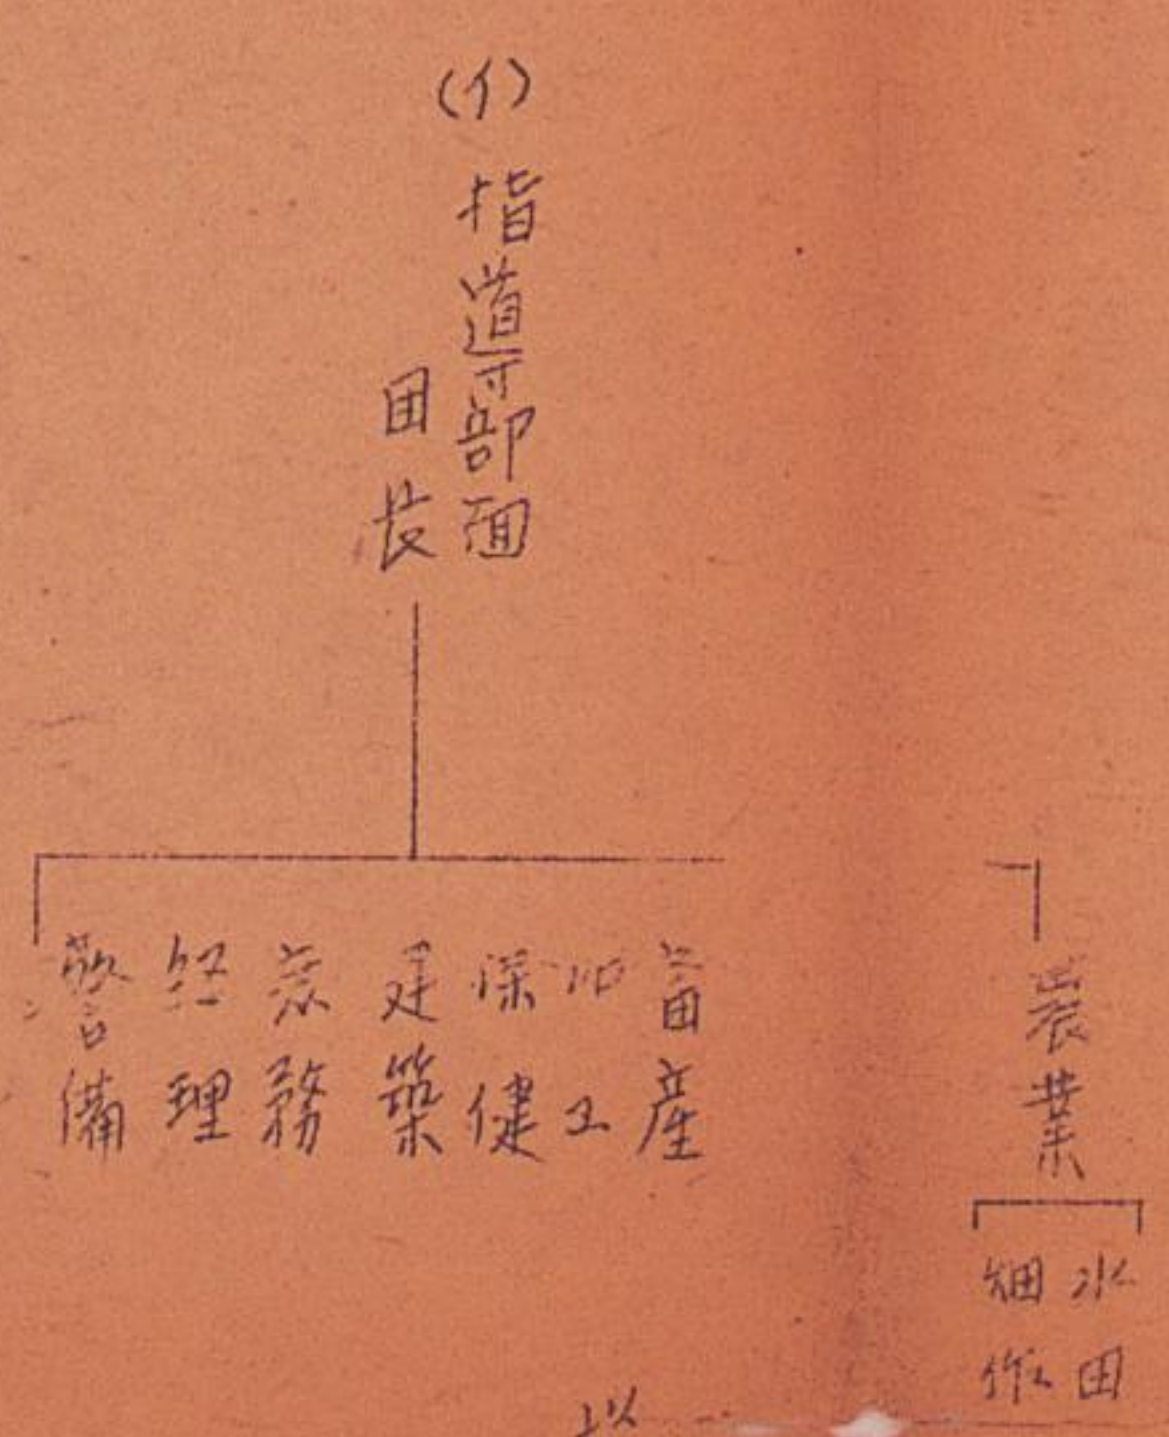 (イ)
指導部面
団長
農業
水田
畑作
畜産
加工
保健
建築
庶務
経理
警備
以